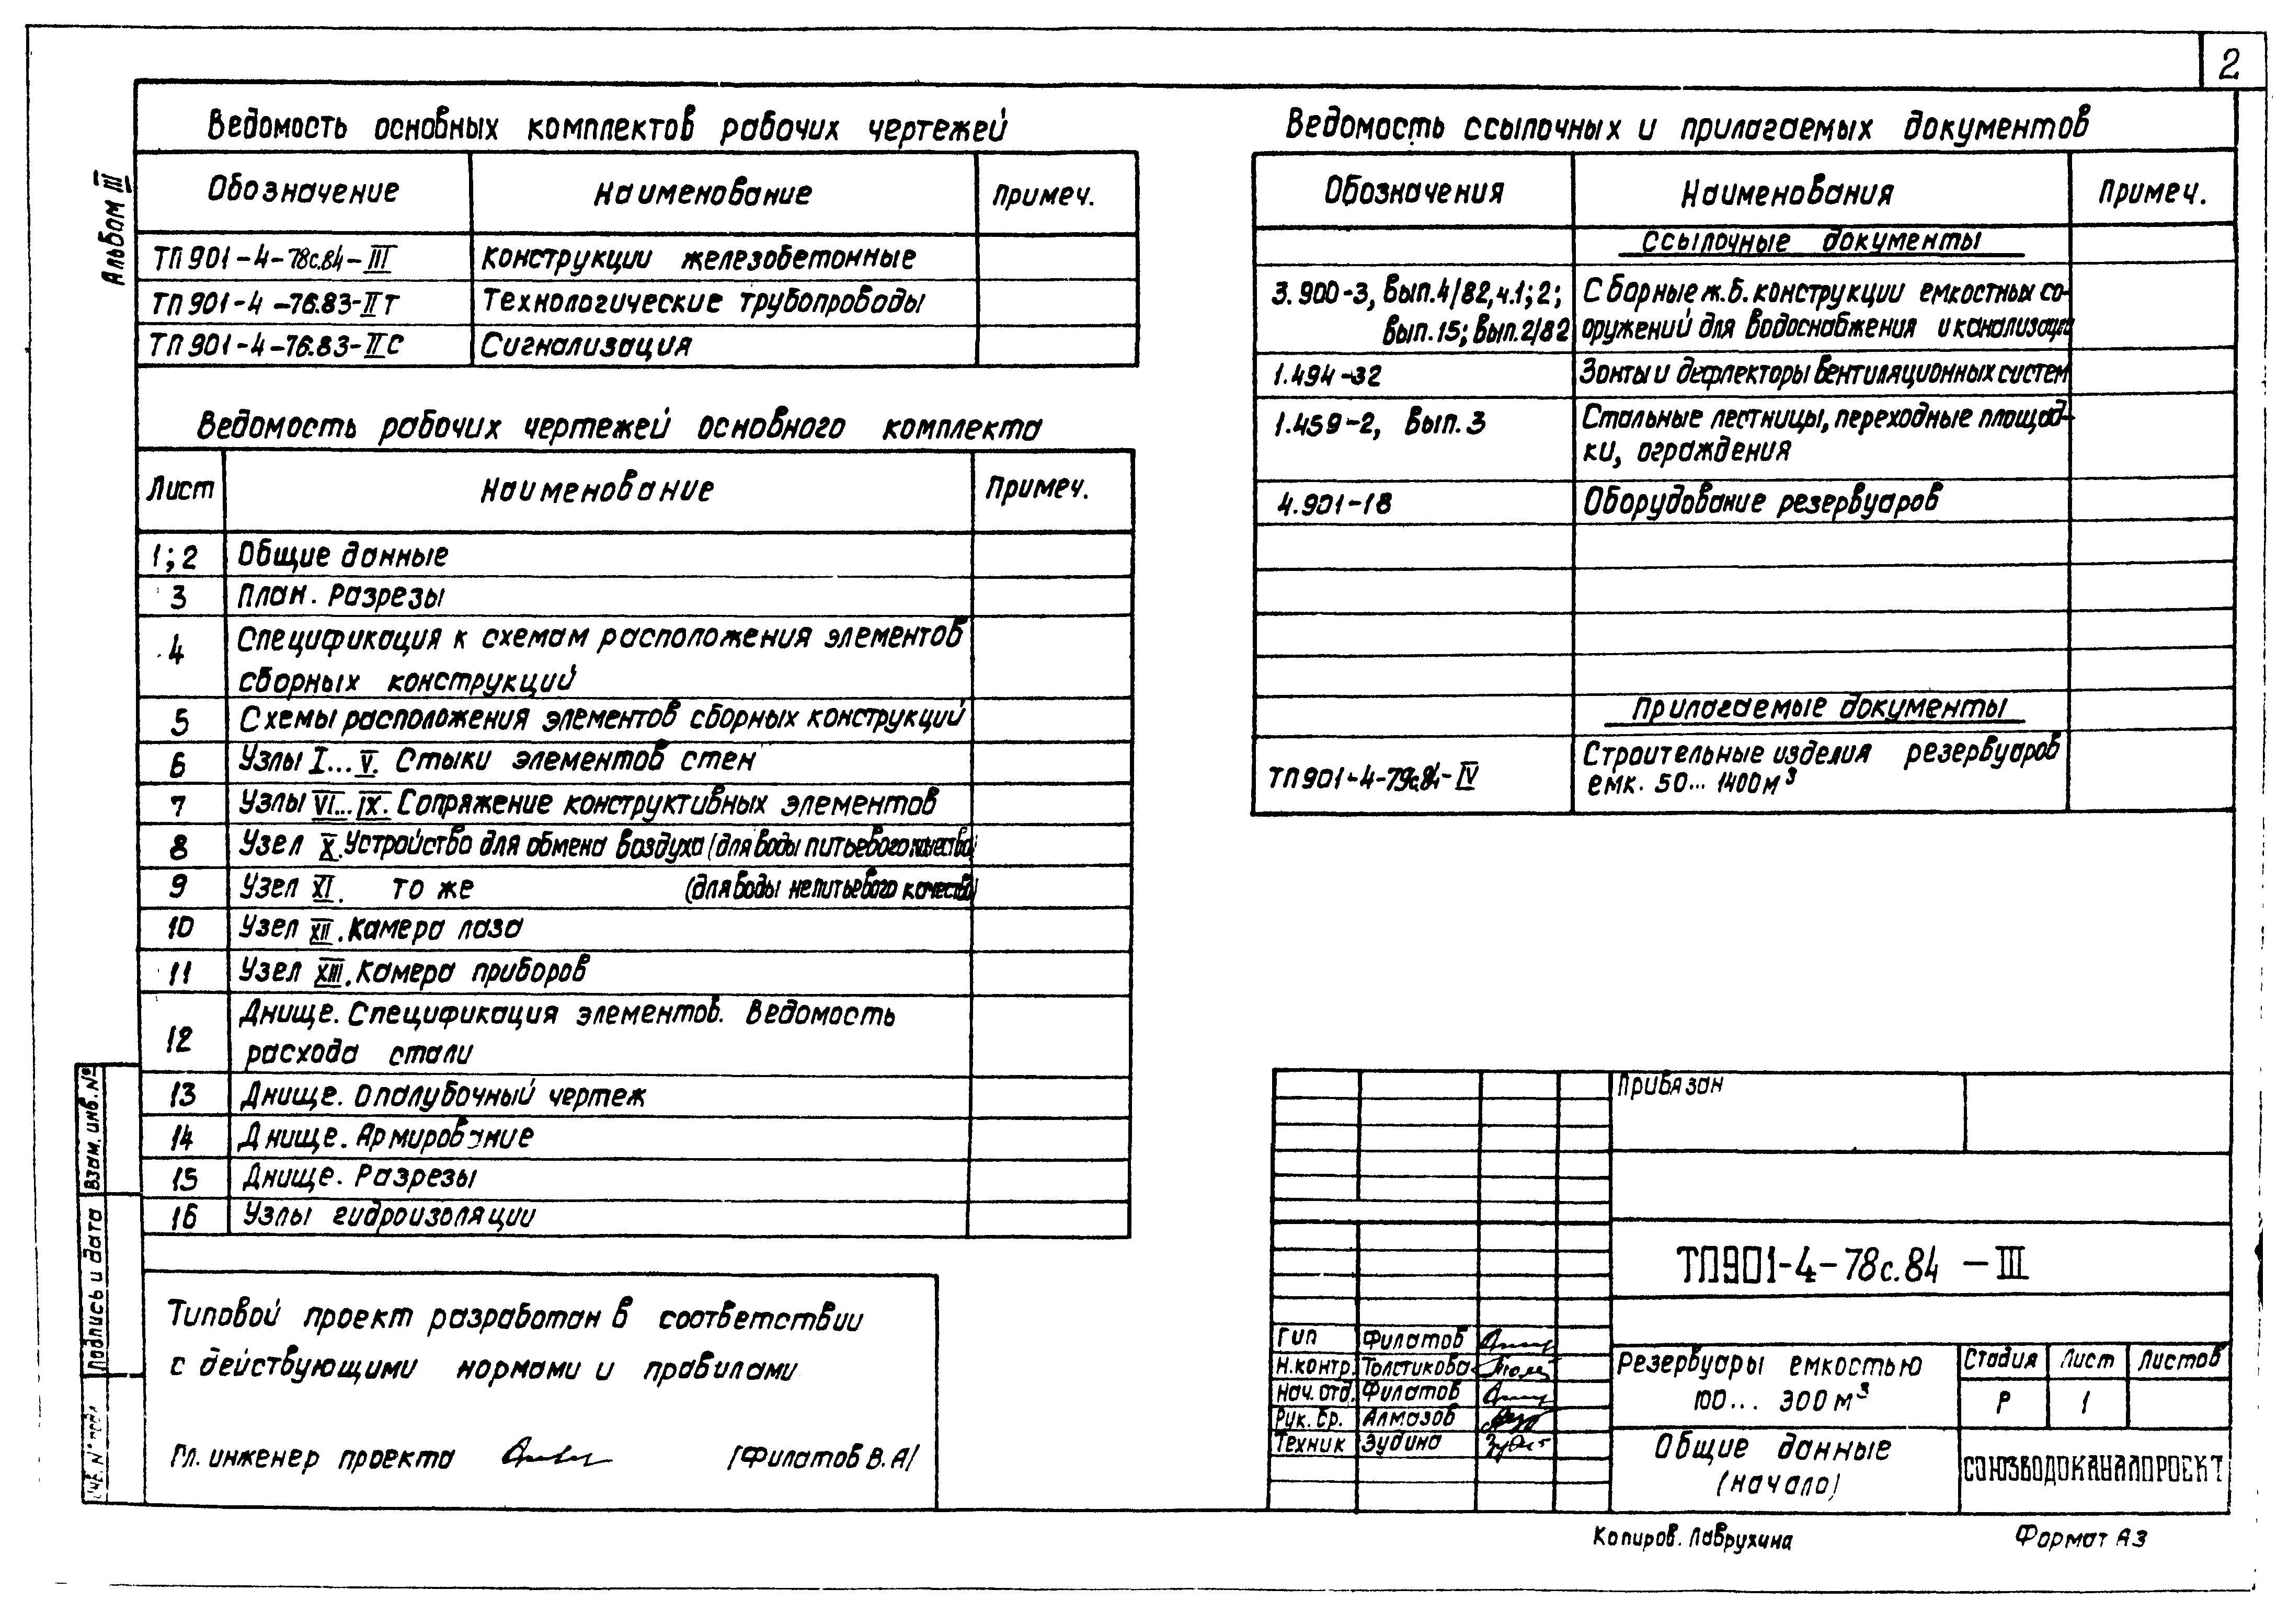 2
Альбом III
Ведомость основных комплектов рабочих чертежей
Обозначение Наименование Примеч.
ТП901-4-78с.84-III Конструкции железобетонные
ТП901-4-76.83-IIТ Технологические трубопроводы
ТП901-4-76.83-IIС Сигнализация
Ведомость рабочих чертежей основного комплекта
Лист Наименование Примеч.
1; 2 Общие данные
3 План. Разрезы
4 Спецификация к схемам расположения элементов
сборных конструкций
5 Схемы расположения элементов сборных конструкций
6 Узлы I...V. Стыки элементов стен
7 Узлы VI...IX. Сопряжение конструктивных элементов
8 Узел X. Устройство для обмена воздуха (для воды питьевого качества)
9 Узел XI. то же (для воды непитьевого качества)
10 Узел XII. Камера лаза
11 Узел XIII. Камера приборов
12 Днище. Спецификация элементов. Ведомость
расхода стали
13 Днище. Опалубочный чертеж
14 Днище. Армирование
15 Днище. Разрезы
16 Узлы гидроизоляции
Типовой проект разработан в соответствии
с действующими нормами и правилами
Гл. инженер проекта /Филатов В.А/
Взам. инв. №
Подпись и дата
Инв. № подл.
Ведомость ссылочных и прилагаемых документов
Обозначения Наименования Примеч.
Ссылочные документы
3.900-3, вып.4/82, ч.1; 2; Сборные ж.б. конструкции емкостных со-
вып.15; вып.2/82 оружений для водоснабжения и канализации
1.494-32 Зонты и дефлекторы вентиляционных систем
1.459-2, вып.3 Стальные лестницы, переходные площад-
ки, ограждения
4.901-18 Оборудование резервуаров
Прилагаемые документы
ТП901-4-79с.84-IV Строительные изделия резервуаров
емк. 50... 1400м³
Привязан
ТП901-4-78с.84 -III
Гип Филатов
Н.контр. Толстикова
Нач. отд. Филатов
Рук. бр. Алмазов
Техник Зудина
Резервуары емкостью
100... 300м³
Стадия Лист Листов
Р 1
Общие данные
(начало)
СОЮЗВОДОКАНАЛПРОЕКТ
Копиров. Лаврухина Формат А3